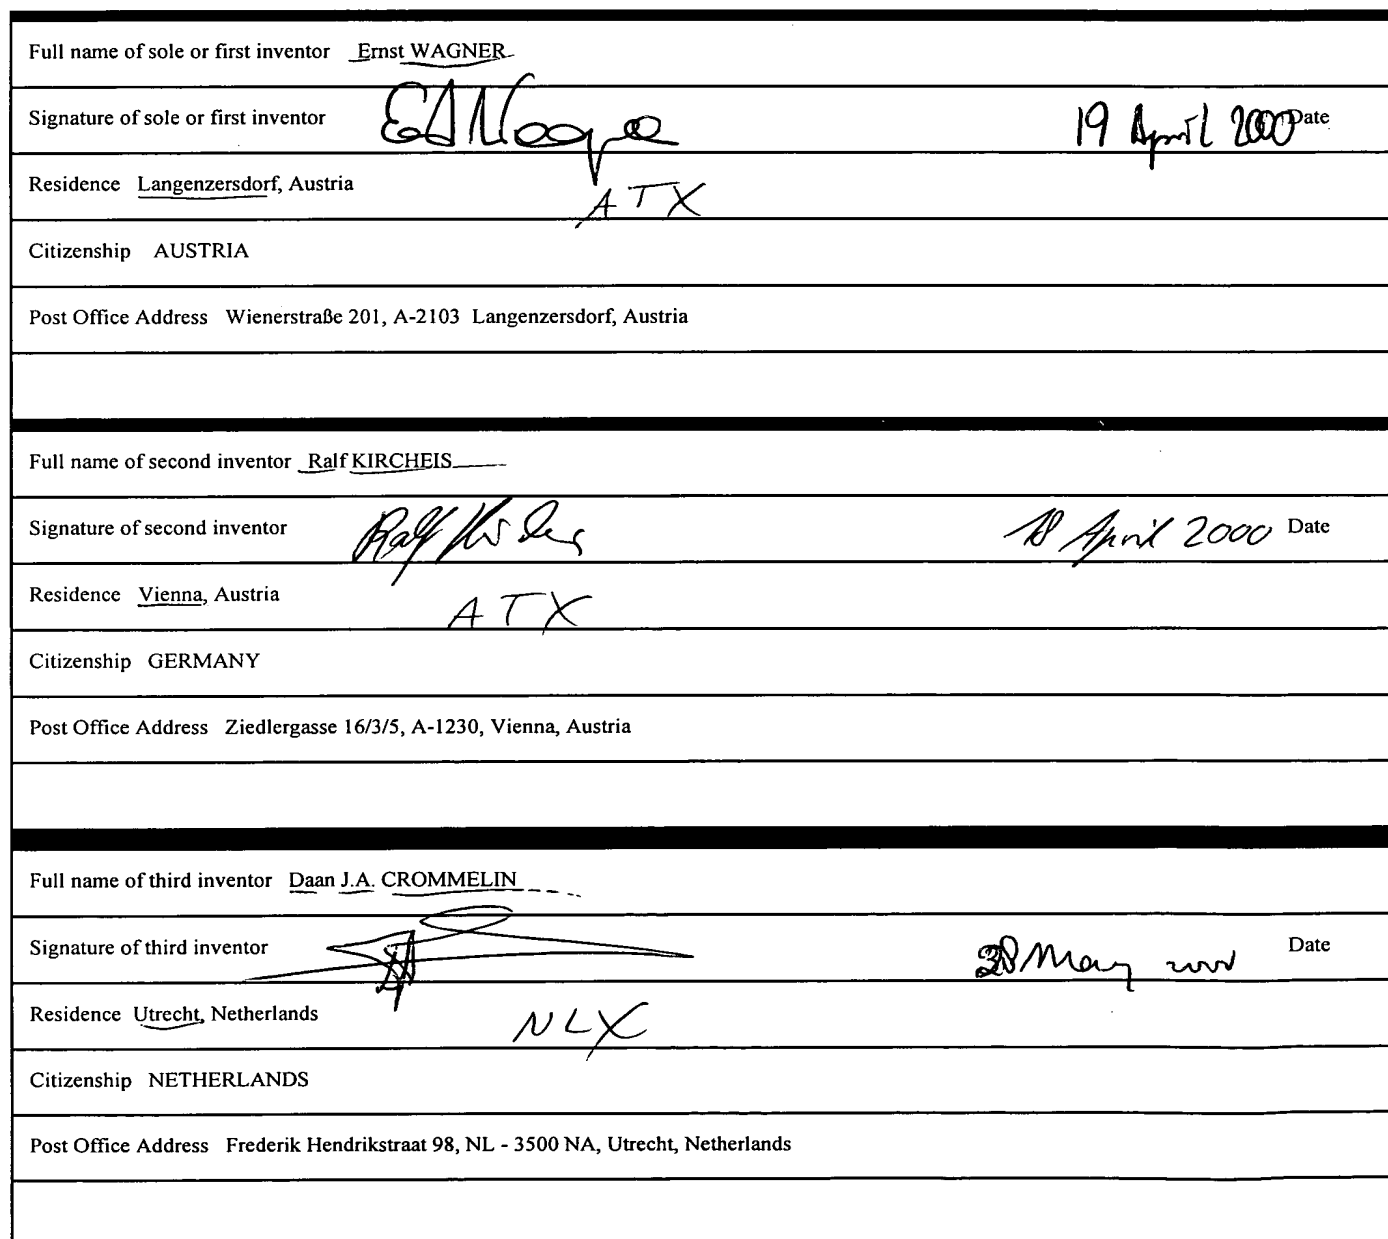 Full name of sole or first inventor Ernst WAGNER
Signature of sole or first inventor 19 April 2000 Date
Residence Langenzersdorf, Austria ATX
Citizenship AUSTRIA
Post Office Address Wienerstraße 201, A-2103 Langenzersdorf, Austria
Full name of second inventor Ralf KIRCHEIS
Signature of second inventor Ralf 18 April 2000 Date
Residence Vienna, Austria ATX
Citizenship GERMANY
Post Office Address Ziedlergasse 16/3/5, A-1230, Vienna, Austria
Full name of third inventor Daan J.A. CROMMELIN
Signature of third inventor May Date
Residence Utrecht, Netherlands NLX
Citizenship NETHERLANDS
Post Office Address Frederik Hendrikstraat 98, NL - 3500 NA, Utrecht, Netherlands